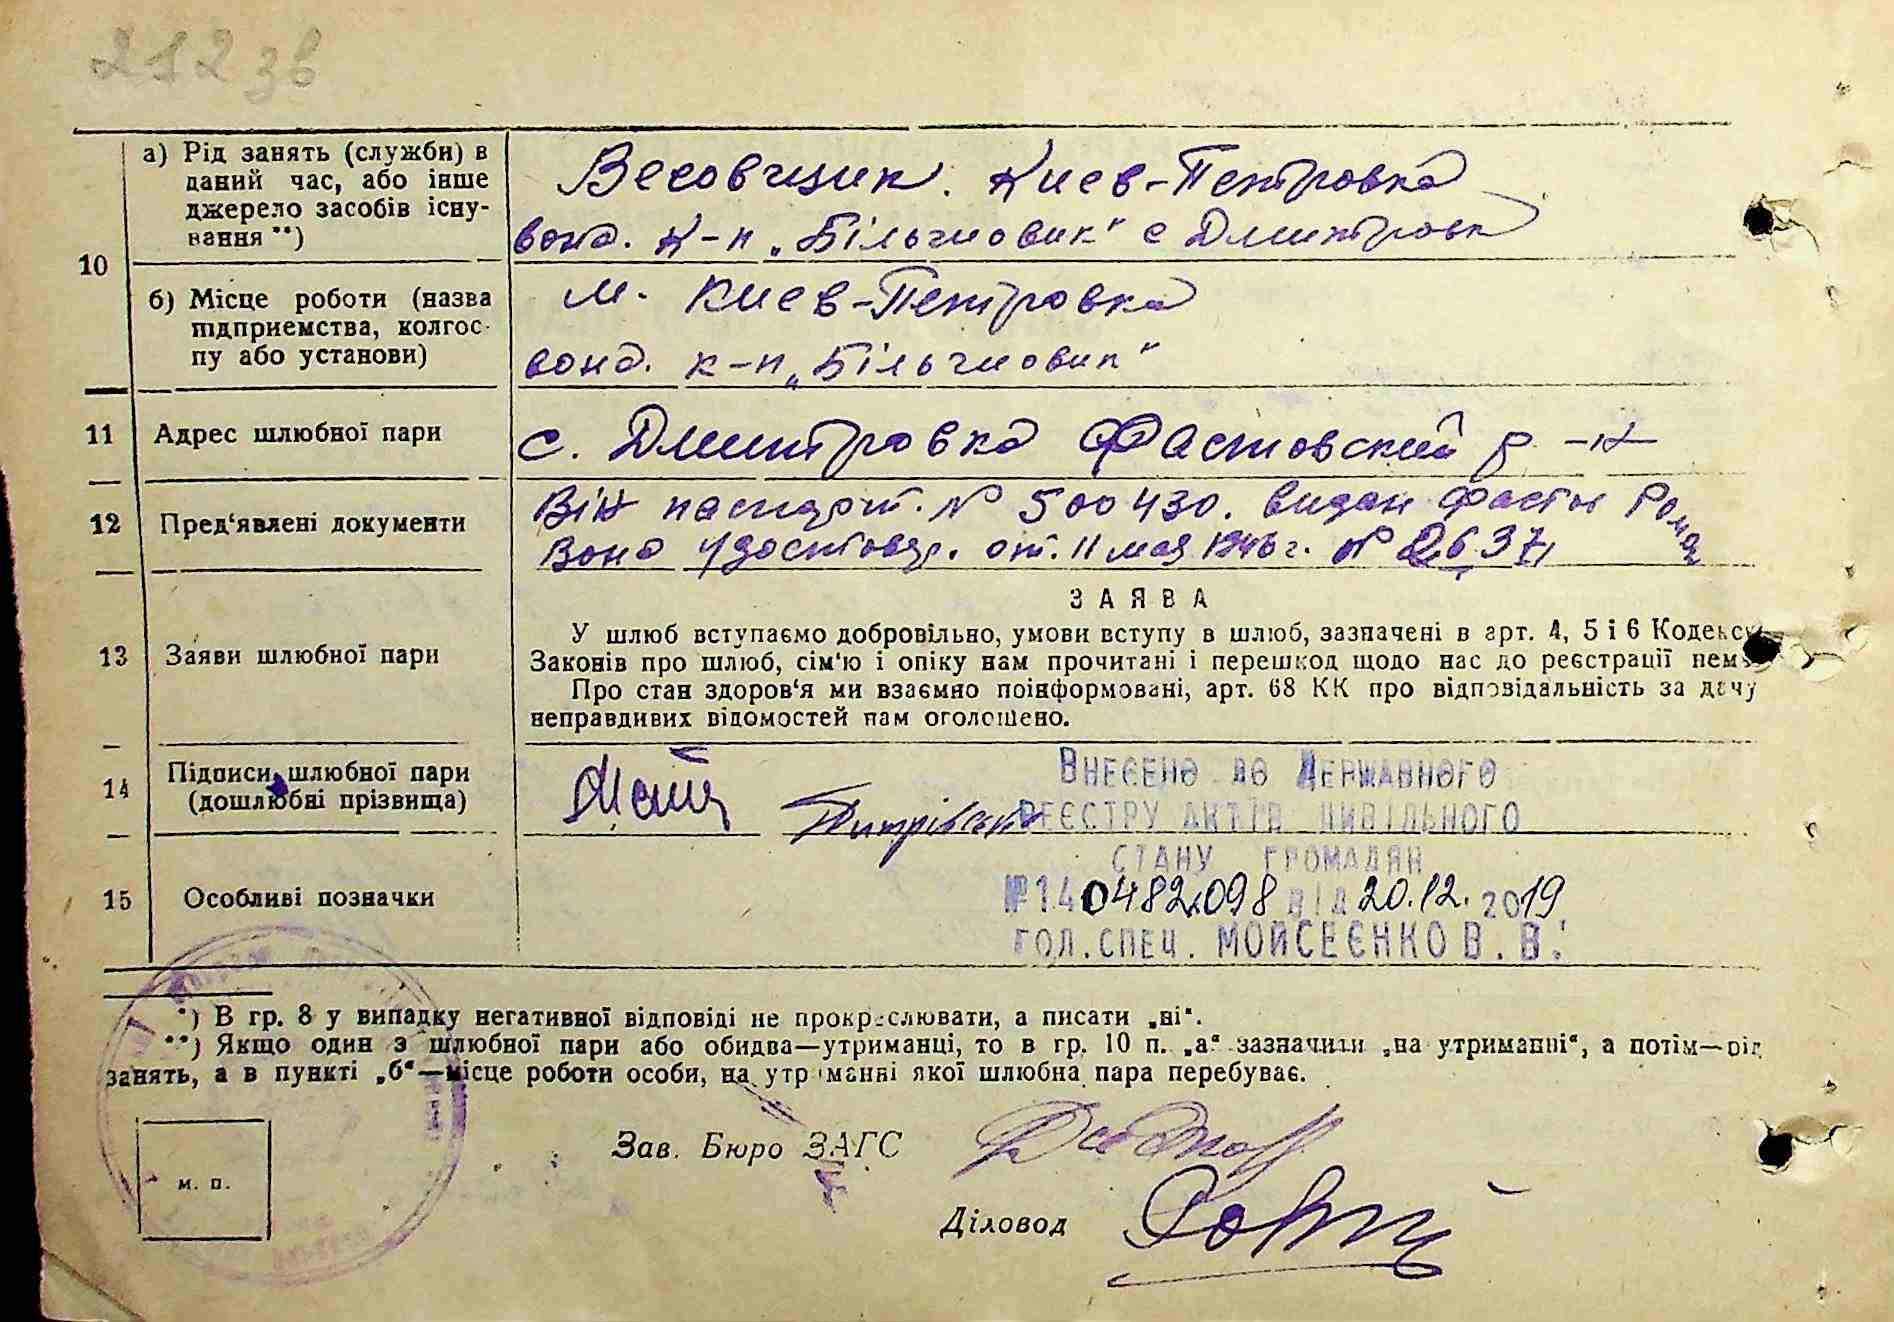 212 зв
а) Рід занять (служби) в
даний час, або інше
джерело засобів існу-
вання **)
Весовщик. Киев-Петровка
вона. к-п „Більшовик“ с Дмитровк
10
б) Місце роботи (назва
підприємства, колгос-
пу або установи)
м. Киев-Петровка
вона. к-п „Більшовик“
11 Адрес шлюбної пари
с. Дмитровка Фастовский р-н
12 Пред‘явлені документи
Він паспорт. № 500430. видан Фастов
Вона удостовер. от. 11 мая 1946 г. № 2637
13 Заяви шлюбної пари
ЗАЯВА
У шлюб вступаємо добровільно, умови вступу в шлюб, зазначені в арт. 4, 5 і 6 Кодексу
Законів про шлюб, сім‘ю і опіку нам прочитані і перешкод щодо нас до реєстрації нема
Про стан здоров‘я ми взаємно поінформовані, арт. 68 КК про відповідальність за дачу
неправдивих відомостей нам оголошено.
14 Підписи шлюбної пари
(дошлюбні прізвища)
Внесено до Державного
реєстру актів цивільного
стану громадян
№140482098 від 20.12.2019
гол. спец. Мойсеєнко В. В.
15 Особливі позначки
*) В гр. 8 у випадку негативної відповіді не прокреслювати, а писати „ні“.
**) Якщо один з шлюбної пари або обидва—утриманці, то в гр. 10 п. „а“ зазначити „на утриманні“, а потім—рід
занять, а в пункті „б“—місце роботи особи, на утриманні якої шлюбна пара перебуває.
Зав. Бюро ЗАГС
м. п.
Діловод